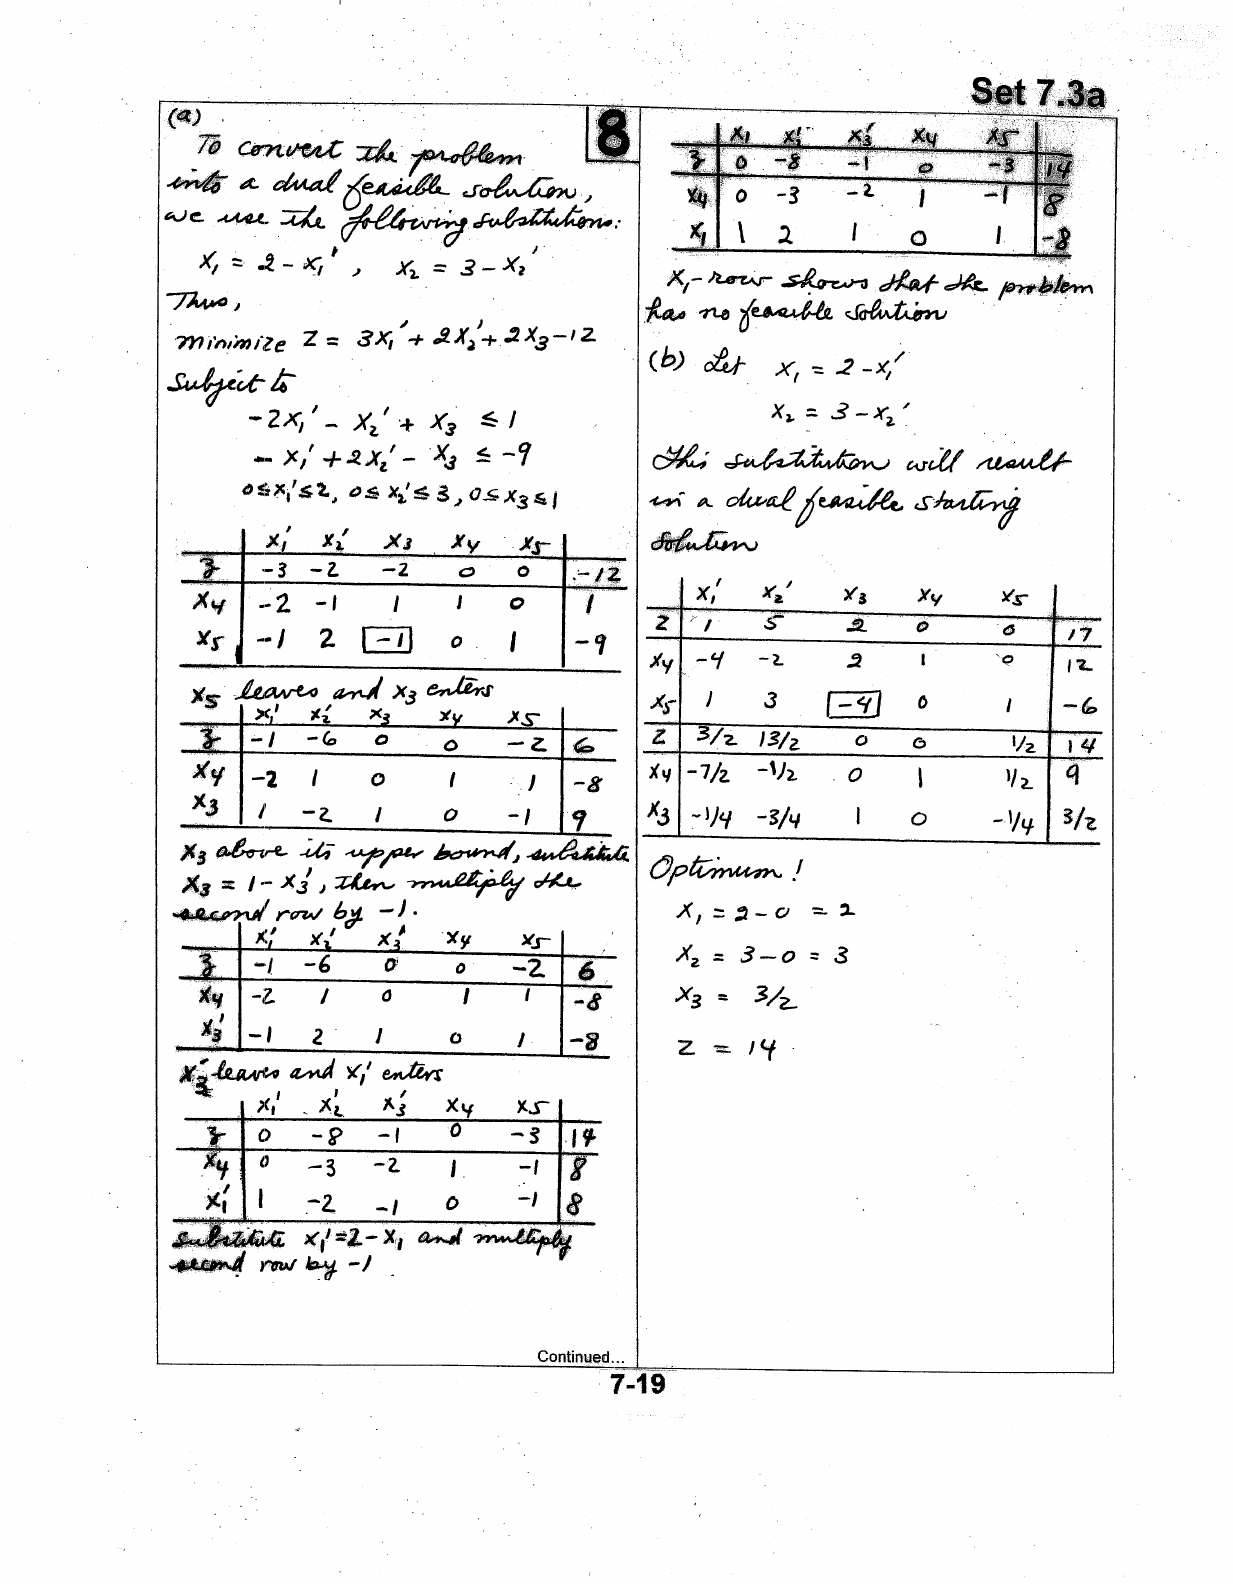 Set 7.3a
(a)
8
To convert the problem
into a dual feasible solution,
we use the following substitutions:
x₁ = 2 - x₁' , x₂ = 3 - x₂'
Thus,
minimize Z = 3x₁' + 2x₂' + 2x₃ - 12
Subject to
-2x₁' - x₂' + x₃ ≤ 1
- x₁' + 2x₂' - x₃ ≤ -9
0≤x₁'≤2, 0≤x₂'≤3, 0≤x₃≤1
x₁' x₂' x₃ x₄ x₅
z -3 -2 -2 0 0 -12
x₄ -2 -1 1 1 0 1
x₅ -1 2 -1 0 1 -9
x₅ leaves and x₃ enters
x₁' x₂' x₃ x₄ x₅
z -1 -6 0 0 -2 6
x₄ -2 1 0 1 1 -8
x₃ 1 -2 1 0 -1 9
x₃ above its upper bound, substitute
x₃ = 1 - x₃' , then multiply the
second row by -1.
x₁' x₂' x₃' x₄ x₅
z -1 -6 0 0 -2 6
x₄ -2 1 0 1 1 -8
x₃' -1 2 1 0 1 -8
x₃' leaves and x₁' enters
x₁' x₂' x₃' x₄ x₅
z 0 -8 -1 0 -3 14
x₄ 0 -3 -2 1 -1 8
x₁' 1 -2 -1 0 -1 8
substitute x₁' = 2 - x₁ and multiply
second row by -1
Continued...
x₁ x₂' x₃' x₄ x₅
z 0 -8 -1 0 -3 14
x₄ 0 -3 -2 1 -1 8
x₁ 1 2 1 0 1 -8
x₁-row shows that the problem
has no feasible solution
(b) Let x₁ = 2 - x₁'
x₂ = 3 - x₂'
This substitution will result
in a dual feasible starting
solution
x₁' x₂' x₃ x₄ x₅
Z 1 5 2 0 0 17
x₄ -4 -2 2 1 0 12
x₅ 1 3 -4 0 1 -6
Z 3/2 13/2 0 0 1/2 14
x₄ -7/2 -1/2 0 1 1/2 9
x₃ -1/4 -3/4 1 0 -1/4 3/2
Optimum !
x₁ = 2 - 0 = 2
x₂ = 3 - 0 = 3
x₃ = 3/2
Z = 14
7-19